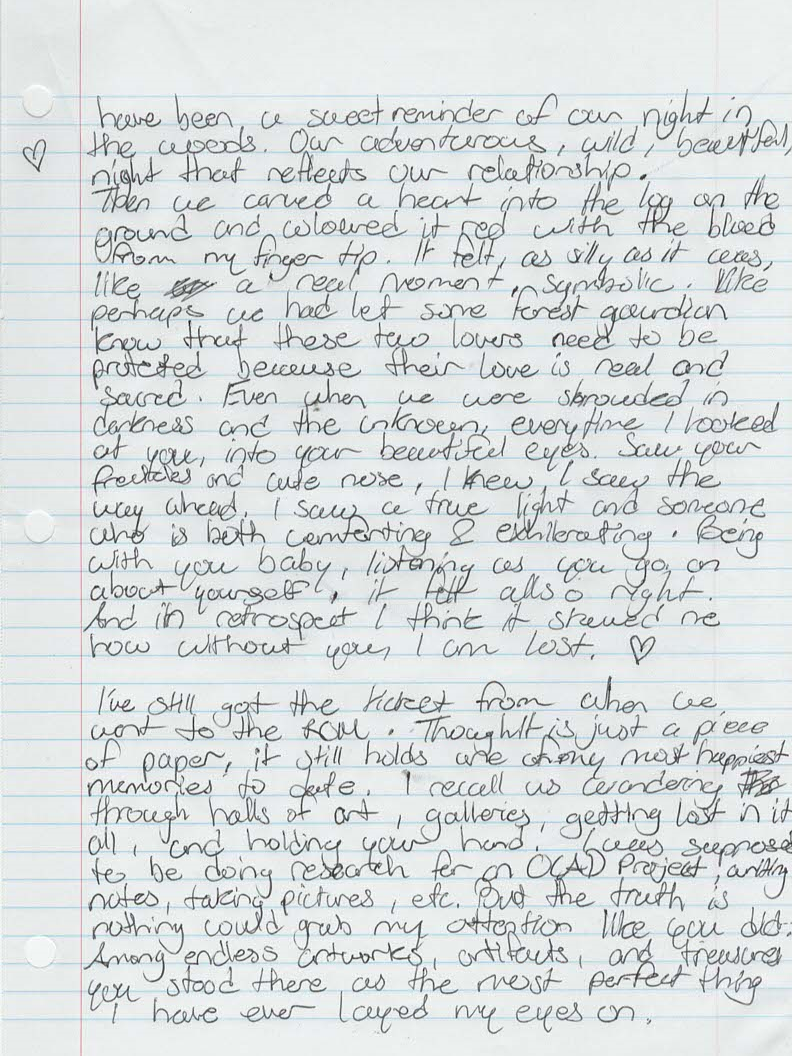 have been a sweet reminder of our night in
the woods. Our adventurous, wild, beautiful,
night that reflects our relationship.
Then we carved a heart into the log on the
ground and coloured it red with the blood
from my finger tip. It felt, as silly as it was,
like a real moment, symbolic. Like
perhaps we had let some forest gaurdian
know that these two lovers need to be
protected because their love is real and
sacred. Even when we were shrouded in
darkness and the unknown, everytime I looked
at you, into your beautiful eyes. Saw your
freckles and cute nose, I knew, I saw the
way ahead. I saw a true light and someone
who is both comforting & exhilerating. Being
with you baby, listening as you go on
about yourself, it felt alls o right.
And in retrospect I think it showed me
how without you, I am lost. ♡
I've still got the ticket from when we
went to the ROM. Though It is just a piece
of paper, it still holds one of my most happiest
memories to date. I recall us wandering
through halls of art, galleries, getting lost in it
all, and holding your hand. I was supposed
to be doing research for an OCAD Project, writing
notes, taking pictures, etc. But the truth is
nothing could grab my attention like you did.
Among endless artworks, artifacts, and treasures
you stood there as the most perfect thing
I have ever layed my eyes on.